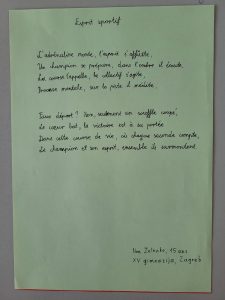 Esprit sportif
L'adrénaline monte, l'esprit s'affûte,
Un champion se prépare, dans l'ombre il
La course l'appelle, le collectif s'agite,
Prouesse mentale, sur la piste il médite.
Faux départ ? Non, seulement un souffle coupé,
Le cœur bat, la victoire est à sa portée
Dans cette course de vie, où chaque seconde compte,
Le champion et son esprit, ensemble ils surmontent.
15 ans
XV gimnazija, Zagreb